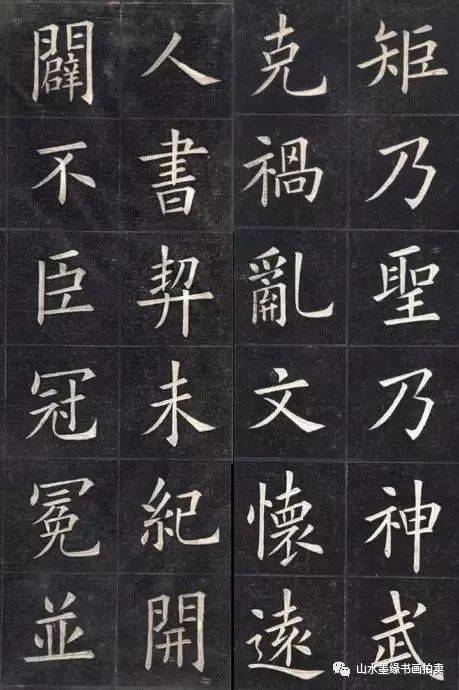 矩乃聖乃神武
克禍亂文懷遠
人書契未紀開
闢不臣冠冕並
山水墨缘书画拍卖